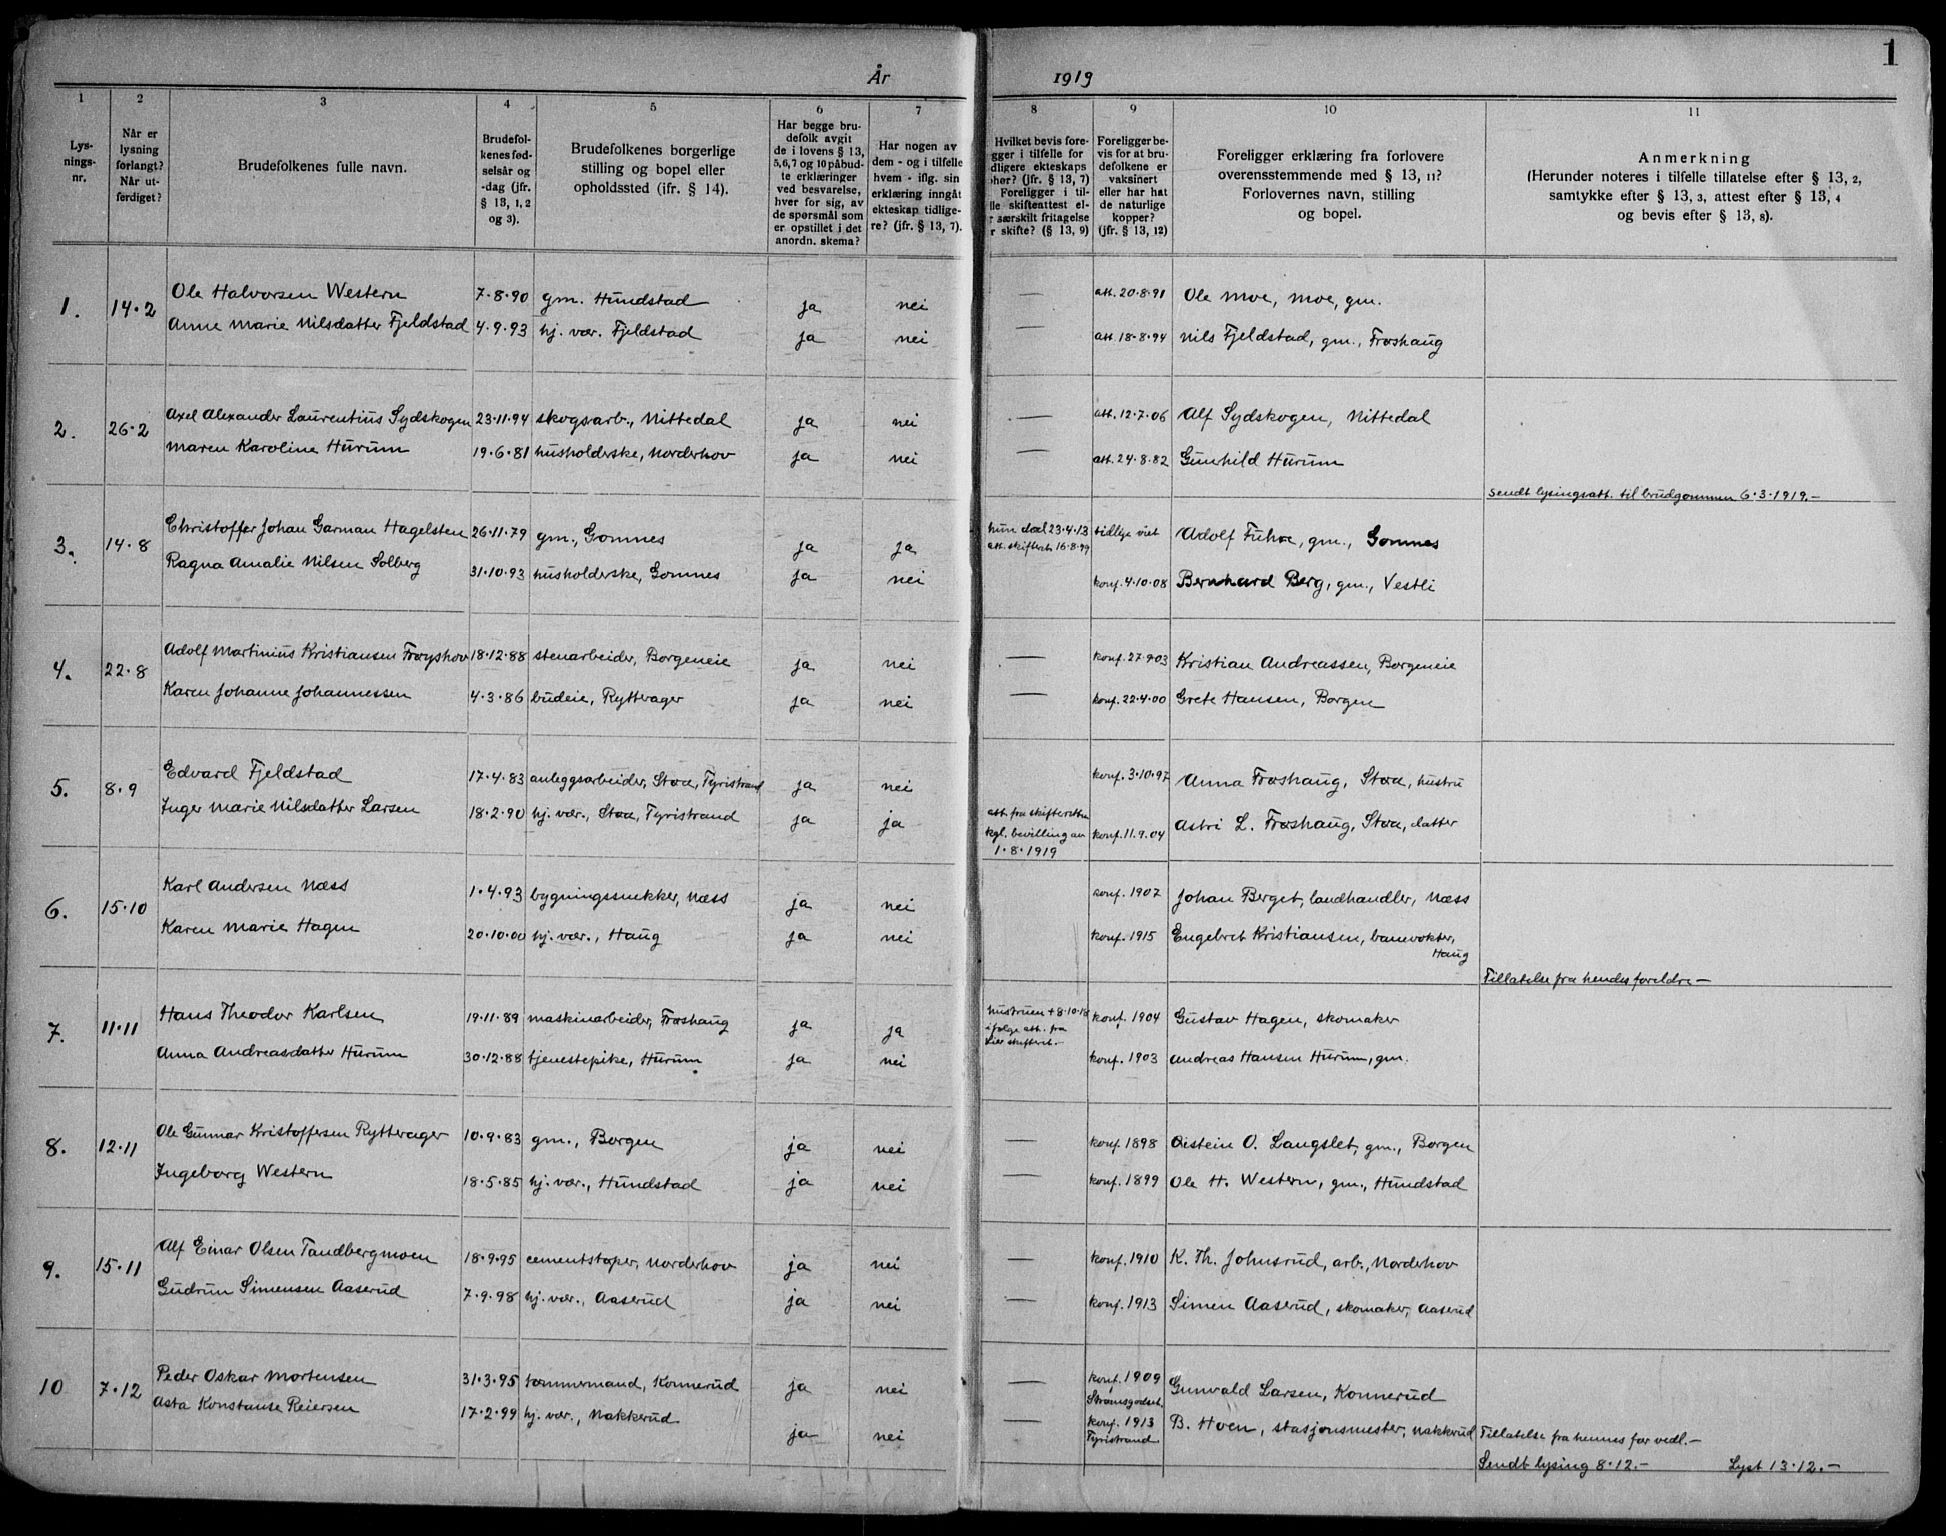 1
År 1919
1 2 3 4 5 6 7 8 9 10 11
Lys-
nings-
nr.
Når er
lysning
forlangt?
Når ut-
ferdiget?
Brudefolkenes fulle navn.
Brudefol-
kenes fød-
selsår og
-dag (jfr.
§ 13, 1, 2
og 3).
Brudefolkenes borgerlige
stilling og bopel eller
opholdssted (ifr. § 14).
Har begge bru-
defolk avgit
de i lovens § 13,
5,6,7 og 10 påbud-
te erklæringer
ved besvarelse,
hver for sig, av
de spørsmål som
er opstillet i det
anordn. skema?
Har nogen av
dem - og i tilfelle
hvem - iflg. sin
erklæring inngåt
ekteskap tidlige-
re? (jfr. § 13, 7).
Hvilket bevis fore-
gger i tilfelle for
dligere ekteskaps
phør? (jfr. § 13, 7)
Foreligger i til-
lle skifteattest el-
r særskilt fritagelse
r skifte? (§ 13, 9)
Foreligger be-
vis for at bru-
defolkene er
vaksinert
eller har hat
de naturlige
kopper?
(jfr. § 13, 12)
Foreligger erklæring fra forlovere
overensstemmende med § 13, 11?
Forlovernes navn, stilling
og bopel.
Anmerkning
(Herunder noteres i tilfelle tillatelse efter § 13, 2,
samtykke efter § 13, 3, attest efter § 13, 4
og bevis efter § 13, 8).
1. 14·2 Ole Halvorsen Western 7·8·90 gm. Hundstad ja nei — att. 20·8·91 Ole Moe, Moe, gm.
Anne Marie Nilsdatter Fjeldstad 4·9·93 hj. vær. Fjeldstad ja nei — att. 18·8·94 Nils Fjeldstad, gm., Frøshaug
2. 26·2 Axel Alexander Laurentius Sydskogen 23·11·94 skogsarb., Nittedal ja nei — att. 12·7·06 Alf Sydskogen, Nittedal
Maren Karoline Hurum 19·6·81 husholderske, Norderhov ja nei — att. 24·8·82 Gunhild Hurum
Sendt lysingsatt. til brudgommen 6·3·1919.—
3. 14·8 Christoffer Johan Garman Hagelsten 26·11·79 gm., Gomnes ja ja hun død 23·4·13 tidlige viet Adolf Fuhre, gm., Gomnes
att. skifteret 16·8·99
Ragna Amalie Nilsen Solberg 31·10·93 husholderske, Gomnes ja nei konf. 4·10·08 Bernhard Berg, gm., Vestli
4. 22·8 Adolf Martinius Kristiansen Frøyshov 18·12·88 stenarbeider, Borgeneie ja nei — konf. 27·9·03 Kristian Andreassen, Borgeneie
Karen Johanne Johannessen 4·3·86 budeie, Rytterager ja nei — konf. 22·4·00 Grete Hansen, Borgen
5. 8·9 Edvard Fjeldstad 17·4·83 anleggsarbeider, Stoa, Tyristrand ja nei konf. 3·10·97 Anna Frøshaug, Stoa, hustru
Inger Marie Nilsdatter Larsen 18·2·90 hj. vær., Stoa, Tyristrand ja ja att. fra skifteretten
kgl. bevilling av konf. 11·9·04 Astri L. Frøshaug, Stoa, datter
1·8·1919
6. 15·10 Karl Andersen Næss 1·4·93 bygningssnekker, Næss ja nei konf. 1907 Johan Berget, landhandler, Næss
Karen Marie Hagen 20·10·00 hj. vær., Haug ja nei konf. 1915 Engebret Kristiansen, banevokter,
Haug
Tillatelse fra hendes foreldre—
7. 11·11 Hans Theodor Karlsen 19·11·89 maskinarbeider, Frøshaug ja ja hustruen + 8·10·18 konf. 1904 Gustav Hagen, skomaker
i følge att. fra
Lier skifteret.—
Anna Andreasdatter Hurum 30·12·88 tjenestepike, Hurum ja nei konf. 1903 Andreas Hansen Hurum, gm.
8. 12·11 Ole Gunnar Kristoffersen Rytterager 10·9·83 gm., Borgen ja nei — konf. 1898 Øistein O. Langslet, gm., Borgen
Ingeborg Western 18·5·85 hj. vær., Hundstad ja nei — konf. 1899 Ole H. Western, gm., Hundstad
9. 15·11 Alf Einar Olsen Tandbergmoen 18·9·95 cementstøper, Norderhov ja nei — konf. 1910 K. Th. Johnsrud, arb., Norderhov
Gudrun Simensen Aaserud 7·9·98 hj. vær., Aaserud ja nei — konf. 1913 Simen Aaserud, skomaker, Aaserud
10 7·12 Peder Oskar Mortensen 31·3·95 tømmermand, Konnerud ja nei — konf. 1909 Gunvald Larsen, Konnerud
Strømsgodset,
Asta Konstanse Reiersen 17·2·99 hj. vær., Nakkerud ja nei — konf. 1913 B. Hoen, stasjonsmester, Nakkerud Tillatelse fra hennes far vedl.—
Tyristrand
Sendt lysing 8·12.— Lyst 13·12.—